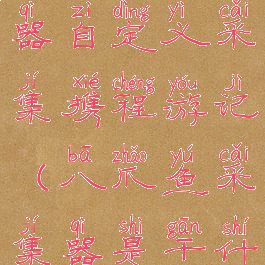 qì zì dìng yì cǎi
器自定义采
jí xié chéng yóu jì
集携程游记
bā zhǎo yú cǎi
(八爪鱼采
jí qì shì gān shí
集器是干什